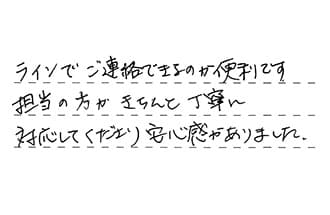 ラインでご連絡できるのが便利です
担当の方がきちんと丁寧に
対応してくださり安心感がありました。